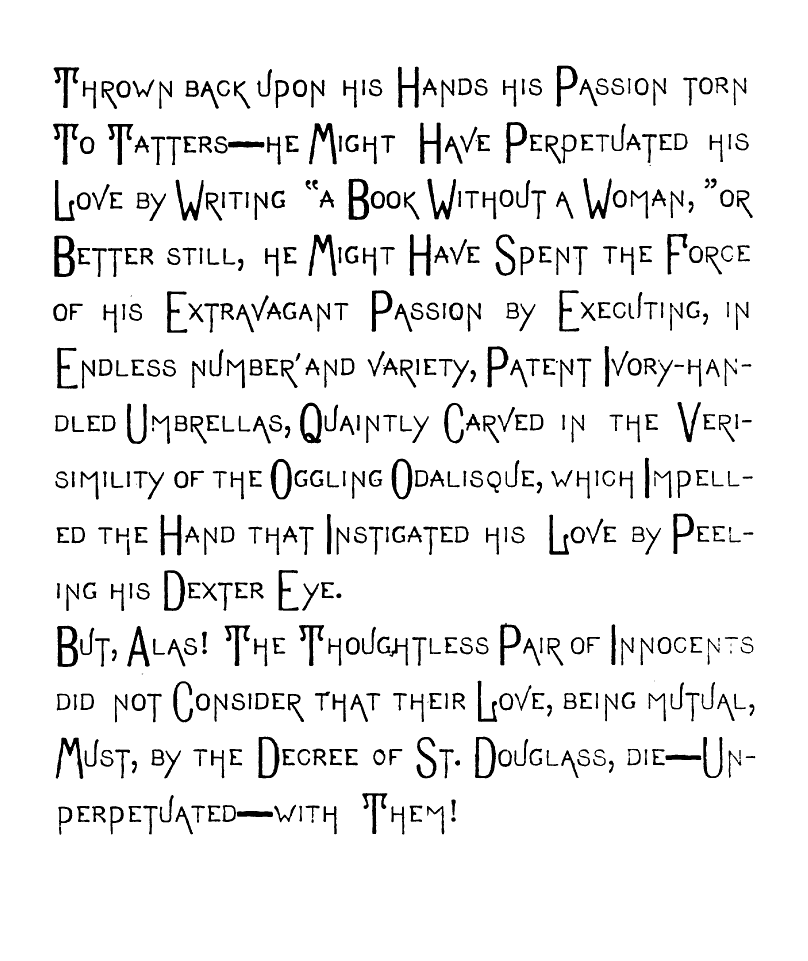 Thrown back Upon his Hands his Passion torn
To Tatters—he Might Have Perpetuated his
Love by Writing "a Book Without a Woman," or
Better still, he Might Have Spent the Force
of his Extravagant Passion by Executing, in
Endless number' and variety, Patent Ivory-han-
dled Umbrellas, Quaintly Carved in the Veri-
simility of the Oggling Odalisque, which Impell-
ed the Hand that Instigated his Love by Peel-
ing his Dexter Eye.
But, Alas! The Thoughtless Pair of Innocents
did not Consider that their Love, being mutual,
Must, by the Decree of St. Douglass, die—Un-
perpetuated—with Them!